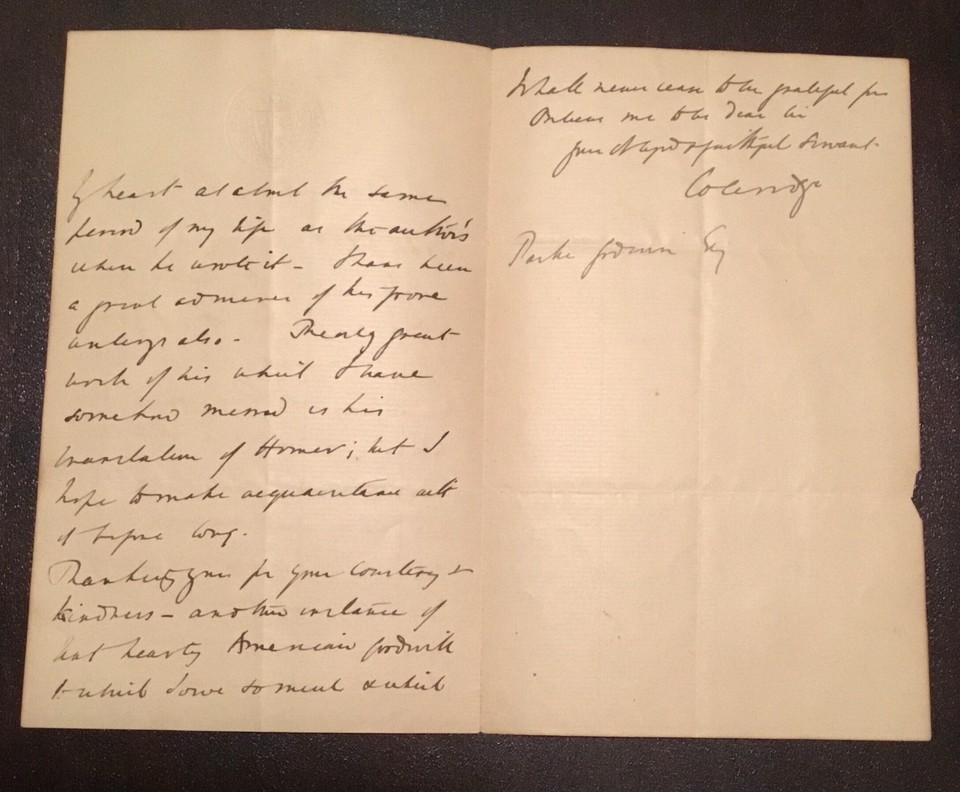 by heart at about the same
period of my life as the author's
when he wrote it – I have been
a great admirer of his prose
writings also – The only great
work of his which I have
somehow missed is his
translation of Homer; but I
hope to make acquaintance with
it before long.
Thanking you for your courtesy &
kindness – another instance of
that hearty American goodwill
to which I owe so much & which
I shall never cease to be grateful for
Believe me to be dear Sir
your obliged & faithful Servant
Coleridge
Parke Godwin Esq